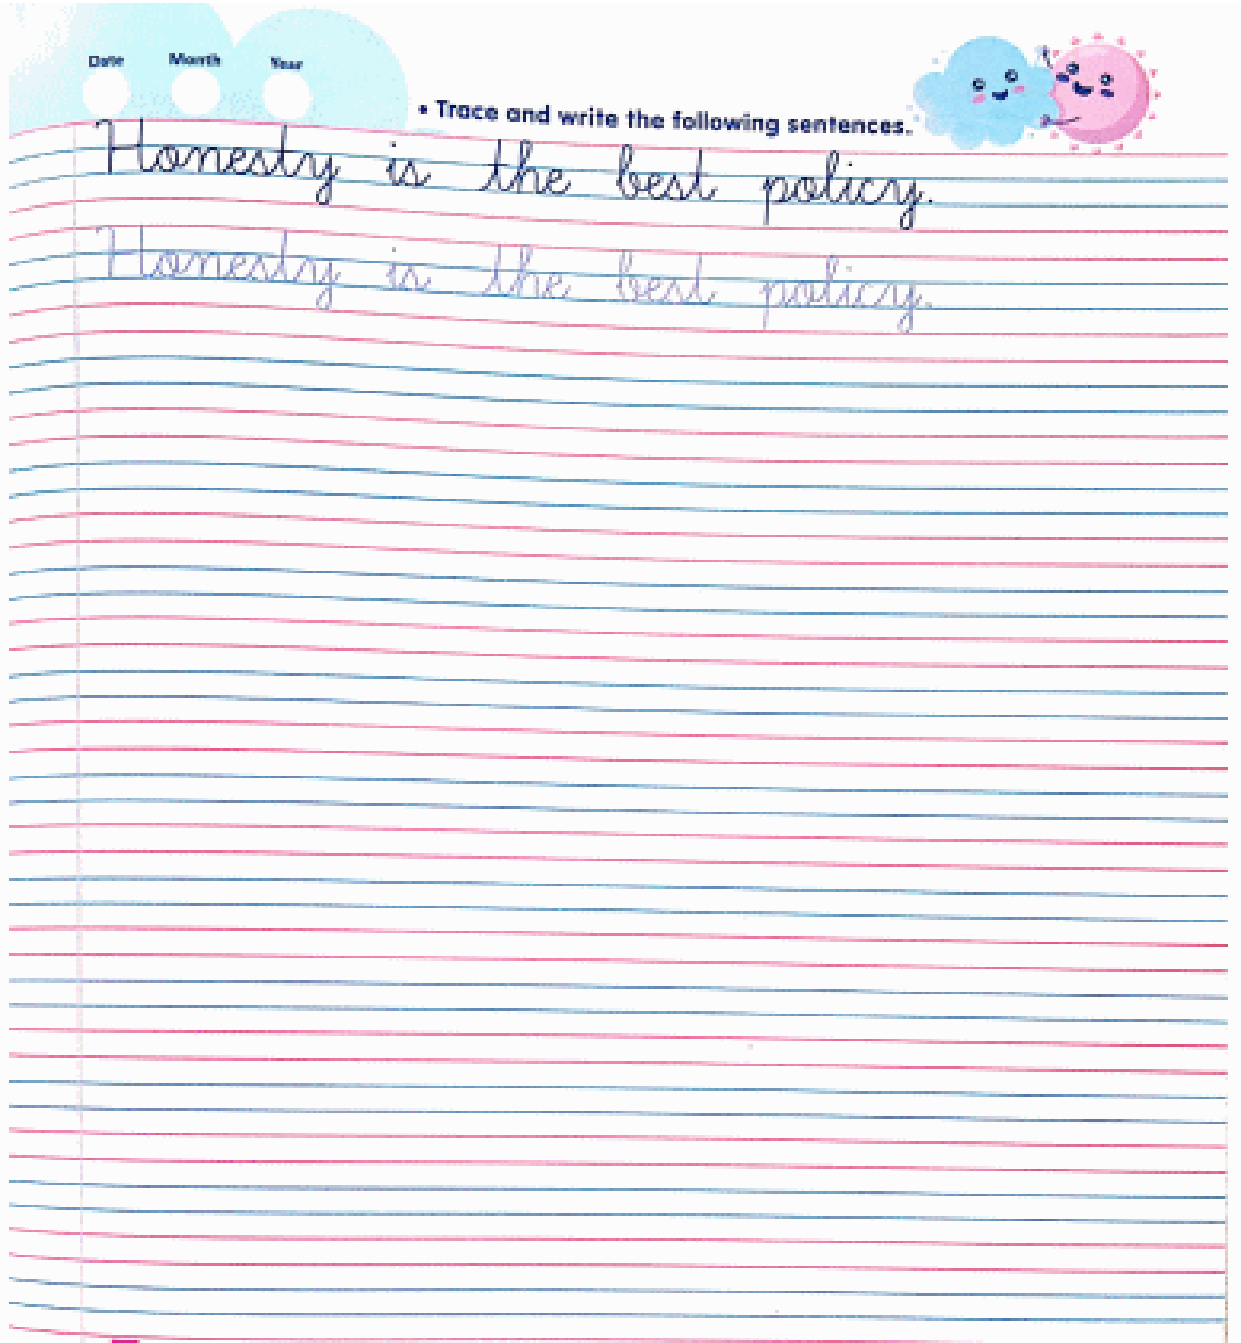 Date Month Year
• Trace and write the following sentences.
Honesty is the best policy.
Honesty is the best policy.